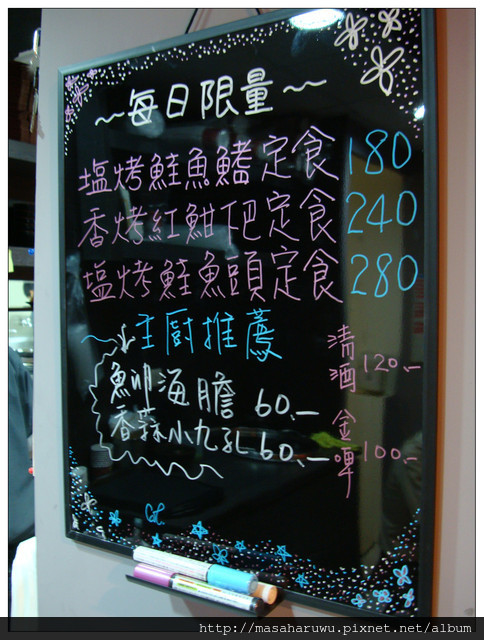 ~每日限量~
塩烤鮭魚鰭定食 180
香烤紅魽下巴定食 240
塩烤鮭魚頭定食 280
主廚推薦
魚卵海膽 60.-
香蒜小九孔 60.-
清酒 120.-
金啤 100.-
http://masaharuwu.pixnet.net/album